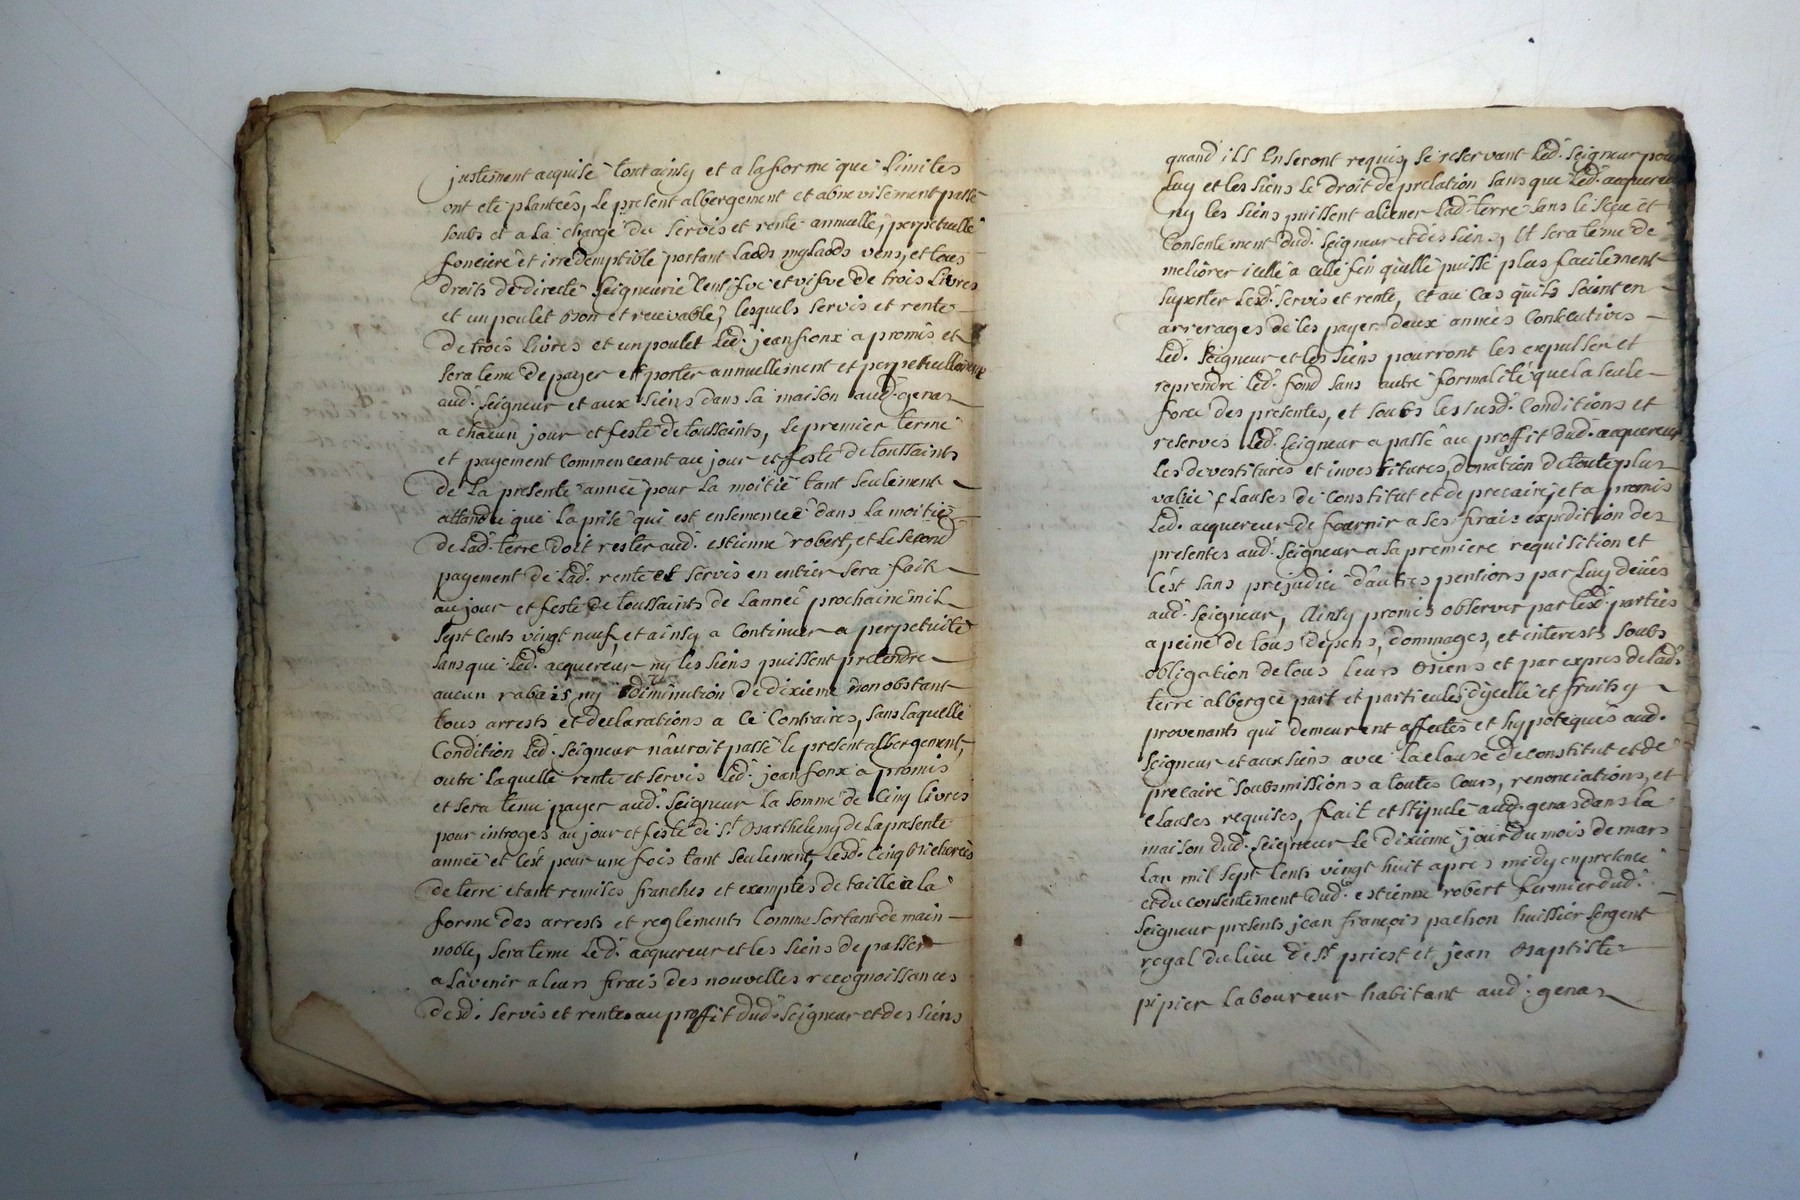 justement acquise tout ainsy et a la forme que limites
ont eté plantées, le present albergement et abnevisement passé
soubs et a la charge du servis et rente annuelle, perpetuelle
fonciere et irredemptible portant laods mylaods vens, et tous
droits de directe seigneurie censive et visve de trois livres
et un poulet bon et recevable, lesquels servis et rente
de trois livres et un poulet led. jean fonx a promis et
sera tenu de payer et porter annuellement et perpetuellement
aud. seigneur et aux siens dans sa maison aud. genas
a chacun jour et feste de toussaints, le premier terme
et payement commenceant au jour et feste de toussaints
de la presente année pour la moitié tant seulement
attandu que la prise qui est ensemencée dans la moitié
de lad. terre doit rester aud. estienne robert, et le second
payement de lad. rente et servis en entier sera fait
au jour et feste de toussaints de lannée prochaine mil
sept cents vingt neuf, et ainsy a continuer a perpetuité
sans que led. acquereur ny les siens puissent pretendre
aucun rabais ny diminution de dixieme nonobstant
tous arrests et declarations a ce contraires, sans laquelle
condition led. seigneur nauroit passé le present albergement,
outre laquelle rente et servis led. jean fonx a promis
et sera tenu payer aud. seigneur la somme de cinq livres
pour introges au jour et feste de st barthelemy de la presente
année et c'est pour une fois tant seulement, lesd. cinq bicherées
de terre etant remises franches et exemptes de taille a la
forme des arrests et reglements comme sortant de main
noble, sera tenu led. acquereur et les siens de passer
a l'avenir a leurs frais des nouvelles recognoissances
desd. servis et rente au proffit dud. seigneur et des siens
quand ils en seront requis, se reservant led. seigneur pour
luy et les siens le droit de prelation sans que led. acquereur
ny les siens puissent aliener lad. terre sans le sceu et
consentement dud. seigneur et des siens, et sera tenu de
meliorer icelle a celle fin qu'elle puisse plus facilement
suporter lesd. servis et rente, et au cas qu'ils soient en
arrerages de les payer deux années consecutives
led. seigneur et les siens pourront les expulser et
reprendre led. fond sans autre formalité que la seule
force des presentes, et soubs les susd. conditions et
reserves led. seigneur a passé au proffit dud. acquereur
les devestitures et investitures, donation de toute plus
value clauses de constitut et de precaire, et a promis
led. acquereur de fournir a ses frais expedition des
presentes aud. seigneur a sa premiere requisition et
c'est sans prejudice d'autres pensions par luy deües
aud. seigneur, ainsy promis observer par lesd. parties
a peine de tous depens, dommages, et interests soubs
obligation de tous leurs biens et par expres de lad.
terre albergée part et particules d'ycelle et fruits y
provenants qui demeurent affectés et hypotequés aud.
seigneur et aux siens avec la clause de constitut et de
precaire soubsmissions a toutes cours, renonciations, et
clauses requises, fait et stipulé aud. genas dans la
maison dud. seigneur le dixieme jour du mois de mars
lan mil sept cents vingt huit apres midy en presence
et du consentement dud. estienne robert fermier dud.
seigneur presents jean françois pachon huissier sergent
regal du lieu de st priest et jean baptiste
pipier laboureur habitant aud. genas